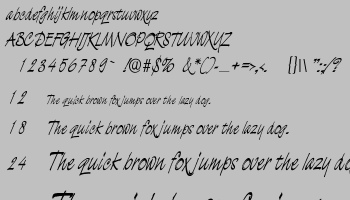 abcdefghijklmnopqrstuvwxyz
ABCDEFGHIJKLMNOPQRSTUVWXYZ
123456789~ !@#$% &*()-_+=>,<. []|\ "::/?
12 The quick brown fox jumps over the lazy dog.
18 The quick brown fox jumps over the lazy dog.
24 The quick brown fox jumps over the lazy do